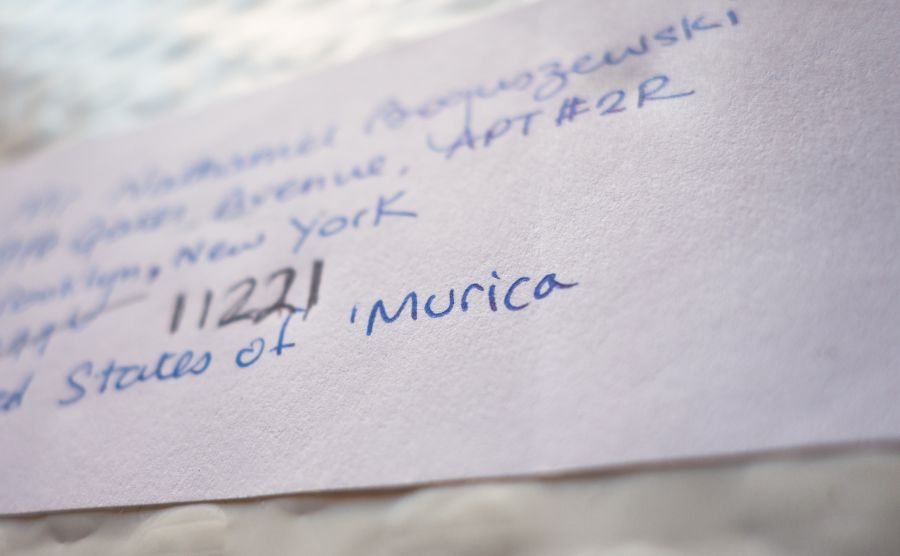 Mr Nathaniel Boguszewski
Gates Avenue, APT #2R
Brooklyn, New York
11221
States of 'Murica